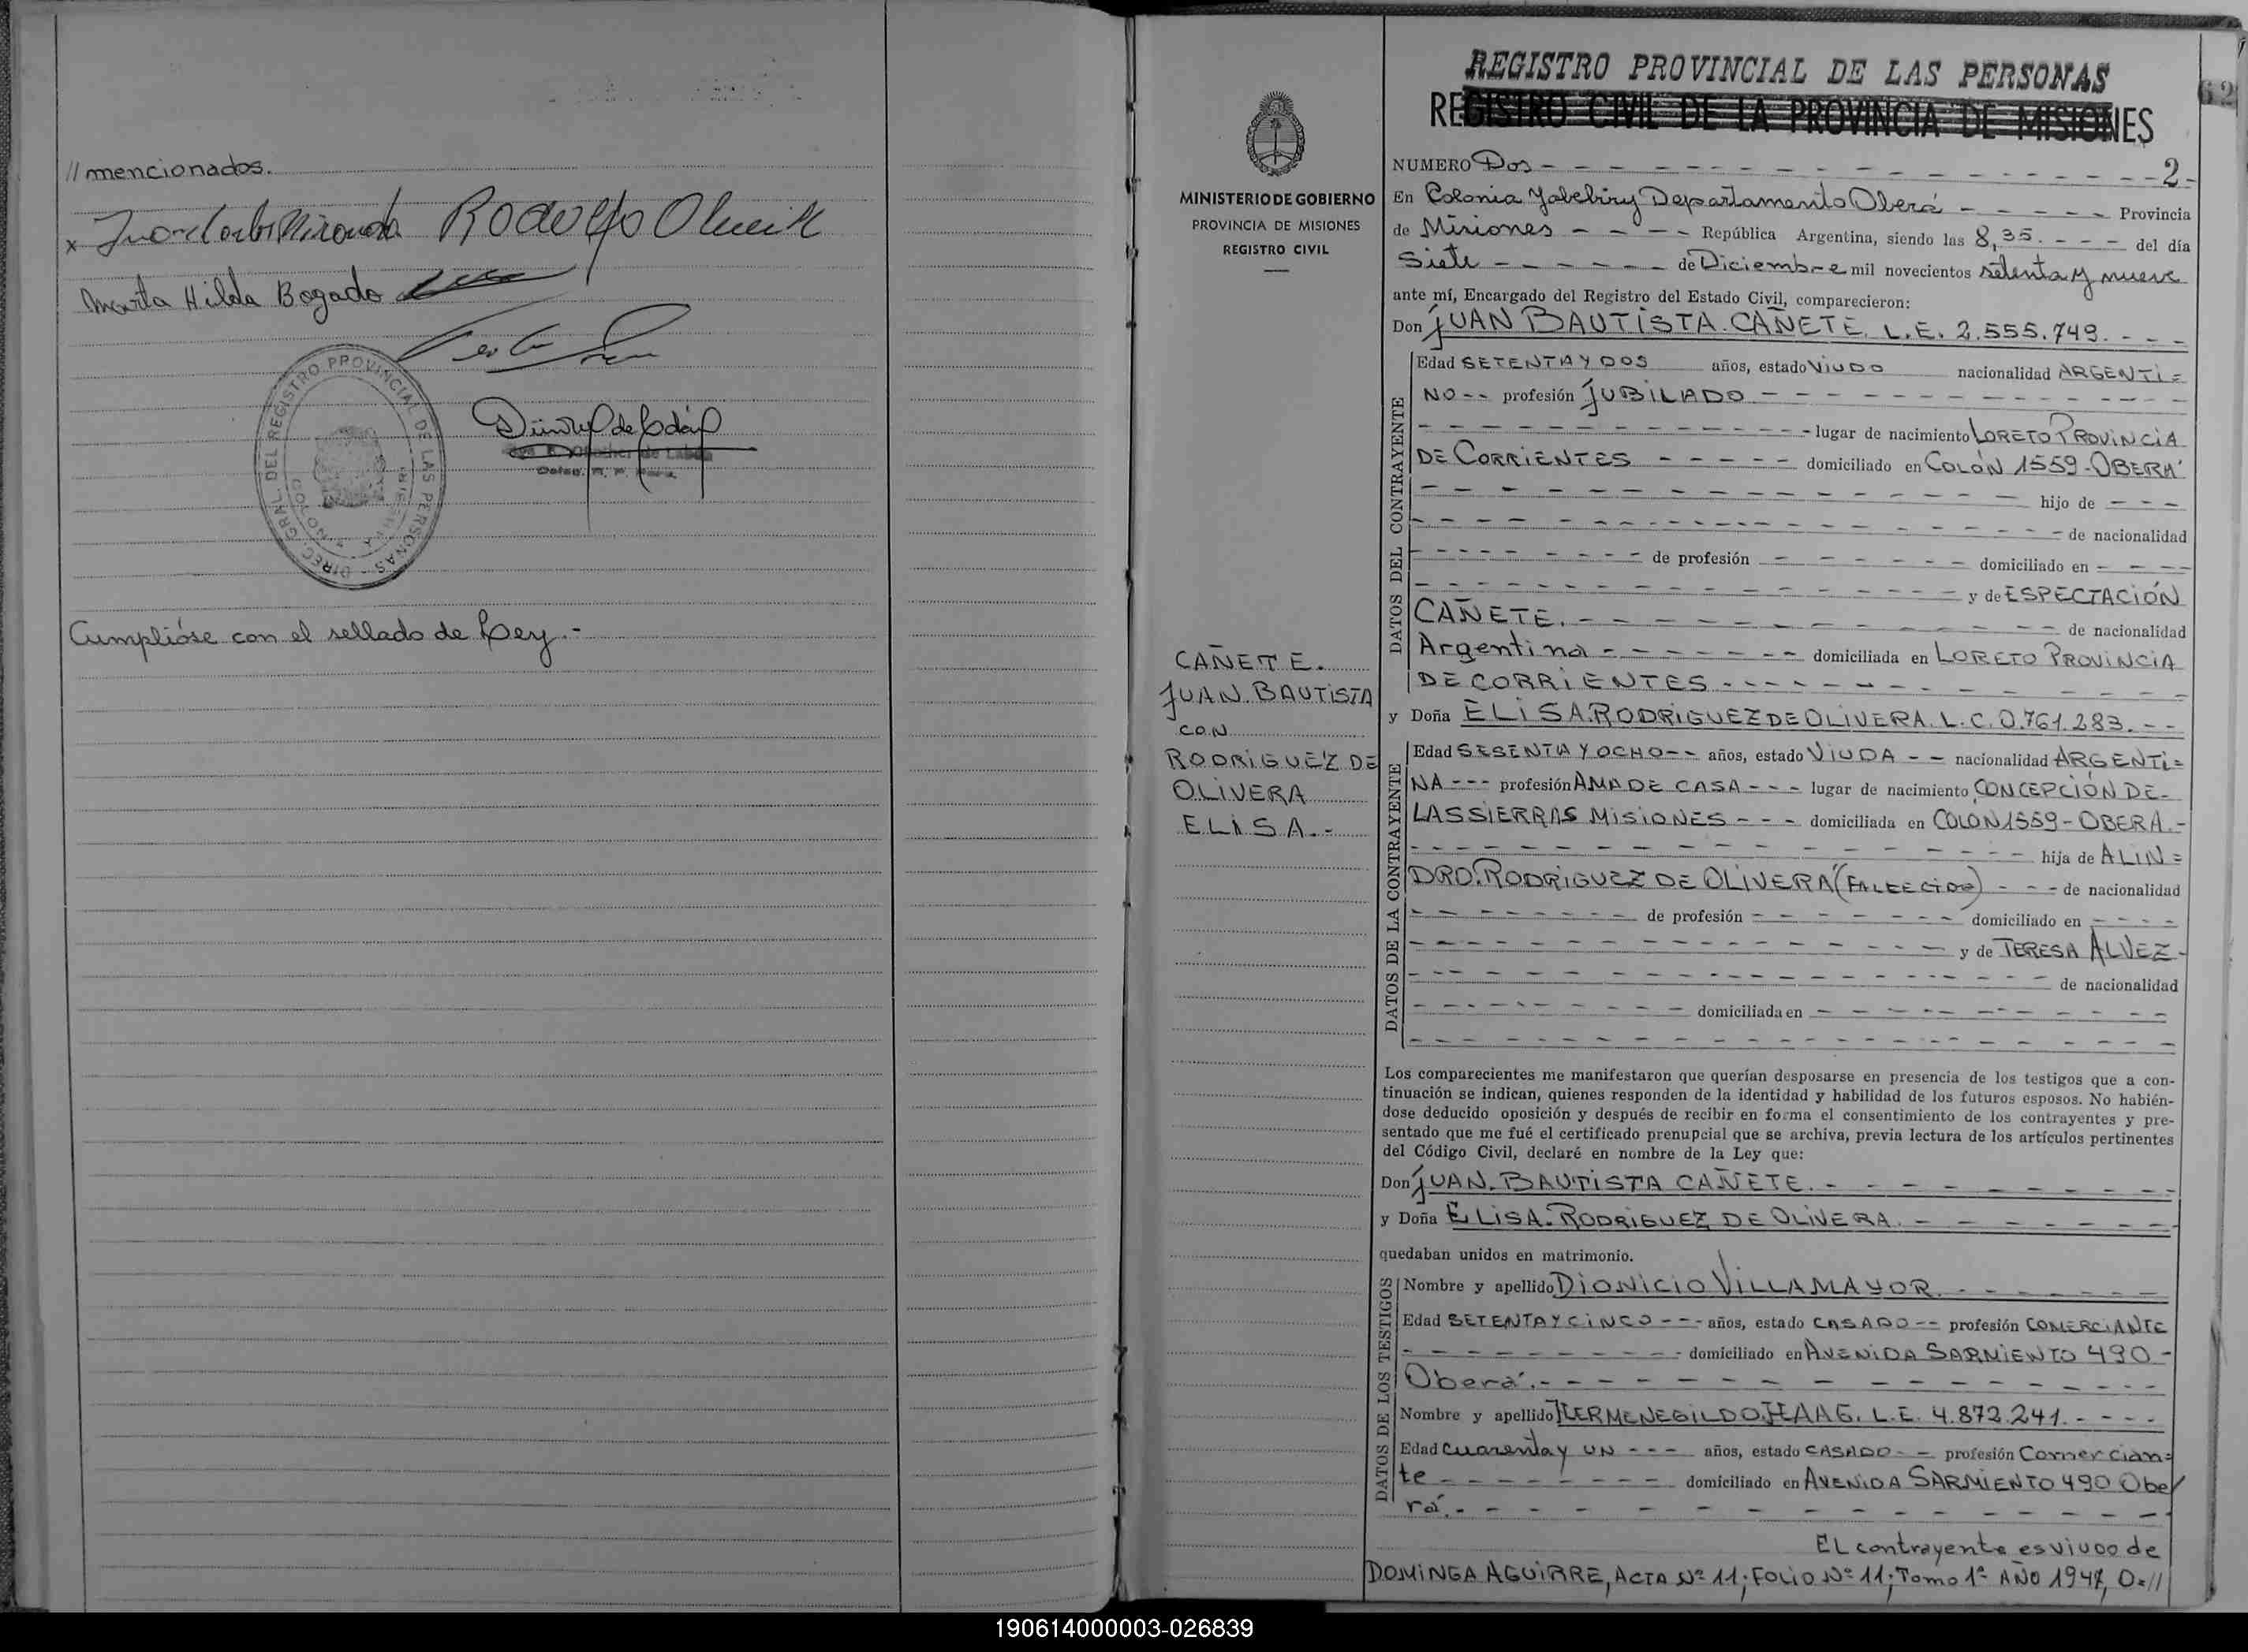 // mencionados.
x Juan Carlos Miranda Rodolfo
Marta Hilda Bogado
DIREC. GRAL. DEL REGISTRO PROVINCIAL DE LAS PERSONAS
Cumplióse con el sellado de Ley.-
MINISTERIO DE GOBIERNO
PROVINCIA DE MISIONES
REGISTRO CIVIL
CAÑETE.
JUAN. BAUTISTA
CON
RODRIGUEZ DE
OLIVERA
ELISA.-
REGISTRO PROVINCIAL DE LAS PERSONAS
62
REGISTRO CIVIL DE LA PROVINCIA DE MISIONES
NUMERO Dos - - - 2 -
En Colonia Yabebiry Departamento Oberá - - - Provincia
de Misiones - - - República Argentina, siendo las 8,35. - - - del día
Siete - - - de Diciembre mil novecientos setenta y nueve
ante mí, Encargado del Registro del Estado Civil, comparecieron:
Don JUAN BAUTISTA. CAÑETE. L.E. 2.555.749. - - -
DATOS DEL CONTRAYENTE
Edad SETENTA Y DOS años, estado VIUDO nacionalidad ARGENTI=
NO - - profesión JUBILADO - - -
- - - lugar de nacimiento LORETO PROVINCIA
DE CORRIENTES - - - domiciliado en COLÓN 1559-OBERÁ
- - - hijo de - - -
- - - de nacionalidad
- - - de profesión - - - domiciliado en - - -
- - - y de ESPECTACIÓN
CAÑETE. - - - de nacionalidad
Argentina - - - domiciliada en LORETO PROVINCIA
DE CORRIENTES - - -
y Doña ELISA. RODRIGUEZ DE OLIVERA. L.C. 0.761.283. - -
DATOS DE LA CONTRAYENTE
Edad SESENTA Y OCHO - - años, estado VIUDA - - nacionalidad ARGENTI=
NA - - - profesión AMA DE CASA - - - lugar de nacimiento CONCEPCIÓN DE-
LAS SIERRAS MISIONES - - - domiciliada en COLON 1559-OBERA.-
- - - hija de ALIN=
DRO. RODRIGUEZ DE OLIVERA (FALLECIDO) - - - de nacionalidad
- - - de profesión - - - domiciliado en - - -
- - - y de TERESA ALVEZ-
- - - de nacionalidad
- - - domiciliada en - - -
- - -
Los comparecientes me manifestaron que querían desposarse en presencia de los testigos que a con-
tinuación se indican, quienes responden de la identidad y habilidad de los futuros esposos. No habién-
dose deducido oposición y después de recibir en forma el consentimiento de los contrayentes y pre-
sentado que me fué el certificado prenupcial que se archiva, previa lectura de los artículos pertinentes
del Código Civil, declaré en nombre de la Ley que:
Don JUAN. BAUTISTA CAÑETE. - - -
y Doña ELISA. RODRIGUEZ DE OLIVERA. - - -
quedaban unidos en matrimonio.
DATOS DE LOS TESTIGOS
Nombre y apellido DIONICIO VILLAMAYOR. - - -
Edad SETENTA Y CINCO - - - años, estado CASADO - - profesión COMERCIANTE
- - - domiciliado en AVENIDA SARMIENTO 490 -
Oberá. - - -
Nombre y apellido HERMENEGILDO HAAG. L.E. 4.872.241. - - -
Edad cuarenta y UN - - - años, estado CASADO - - profesión Comercian=
te - - - domiciliado en AVENIDA SARMIENTO 490 Obe/
rá. - - -
EL contrayente es viudo de
DOMINGA AGUIRRE, ACTA Nº 11; FOLIO Nº 11; Tomo 1º AÑO 1947, O=//
190614000003-026839